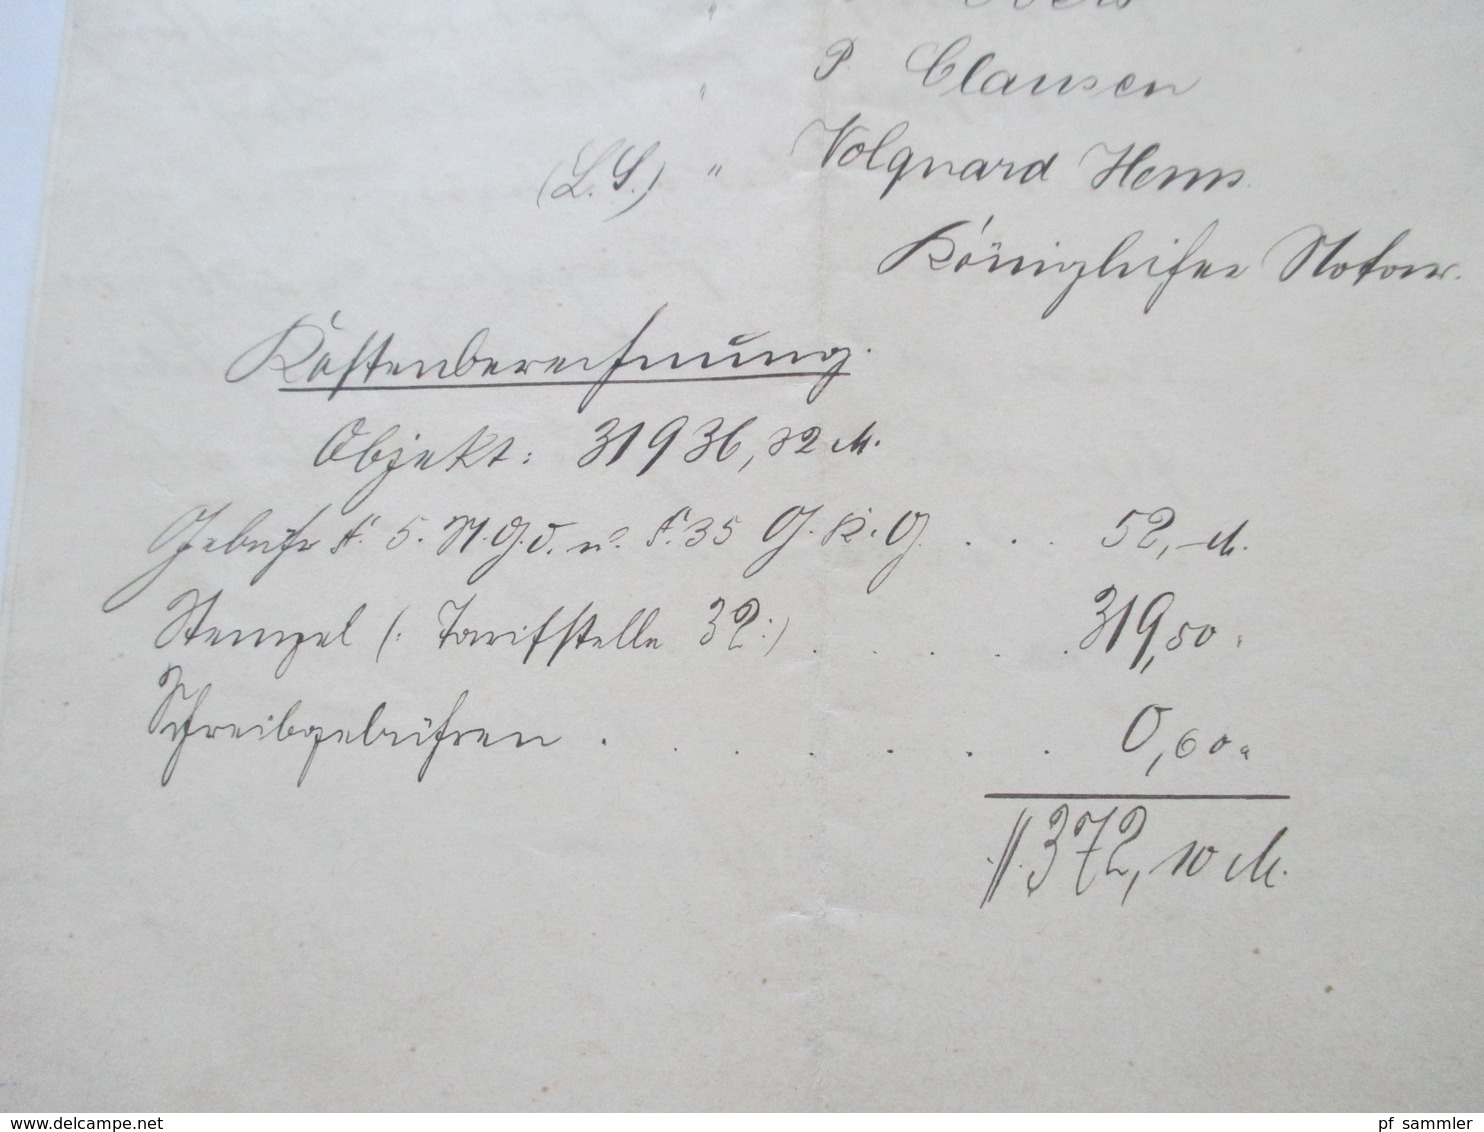 "
" P. Clausen
(L. S.) " Volquard Hems.
Königlicher Notar.
Kostenberechnung.
Objekt: 31936,32 M.
Gebühr §. 5. N. G. O. u. §. 35 G. K. G. . . . 52,— M.
Stempel (: Tarifstelle 32 :) . . . . . 319,50 "
Schreibgebühren . . . . . . . 0,60 "
372,10 M.
pf_sammler
www.delcampe.net